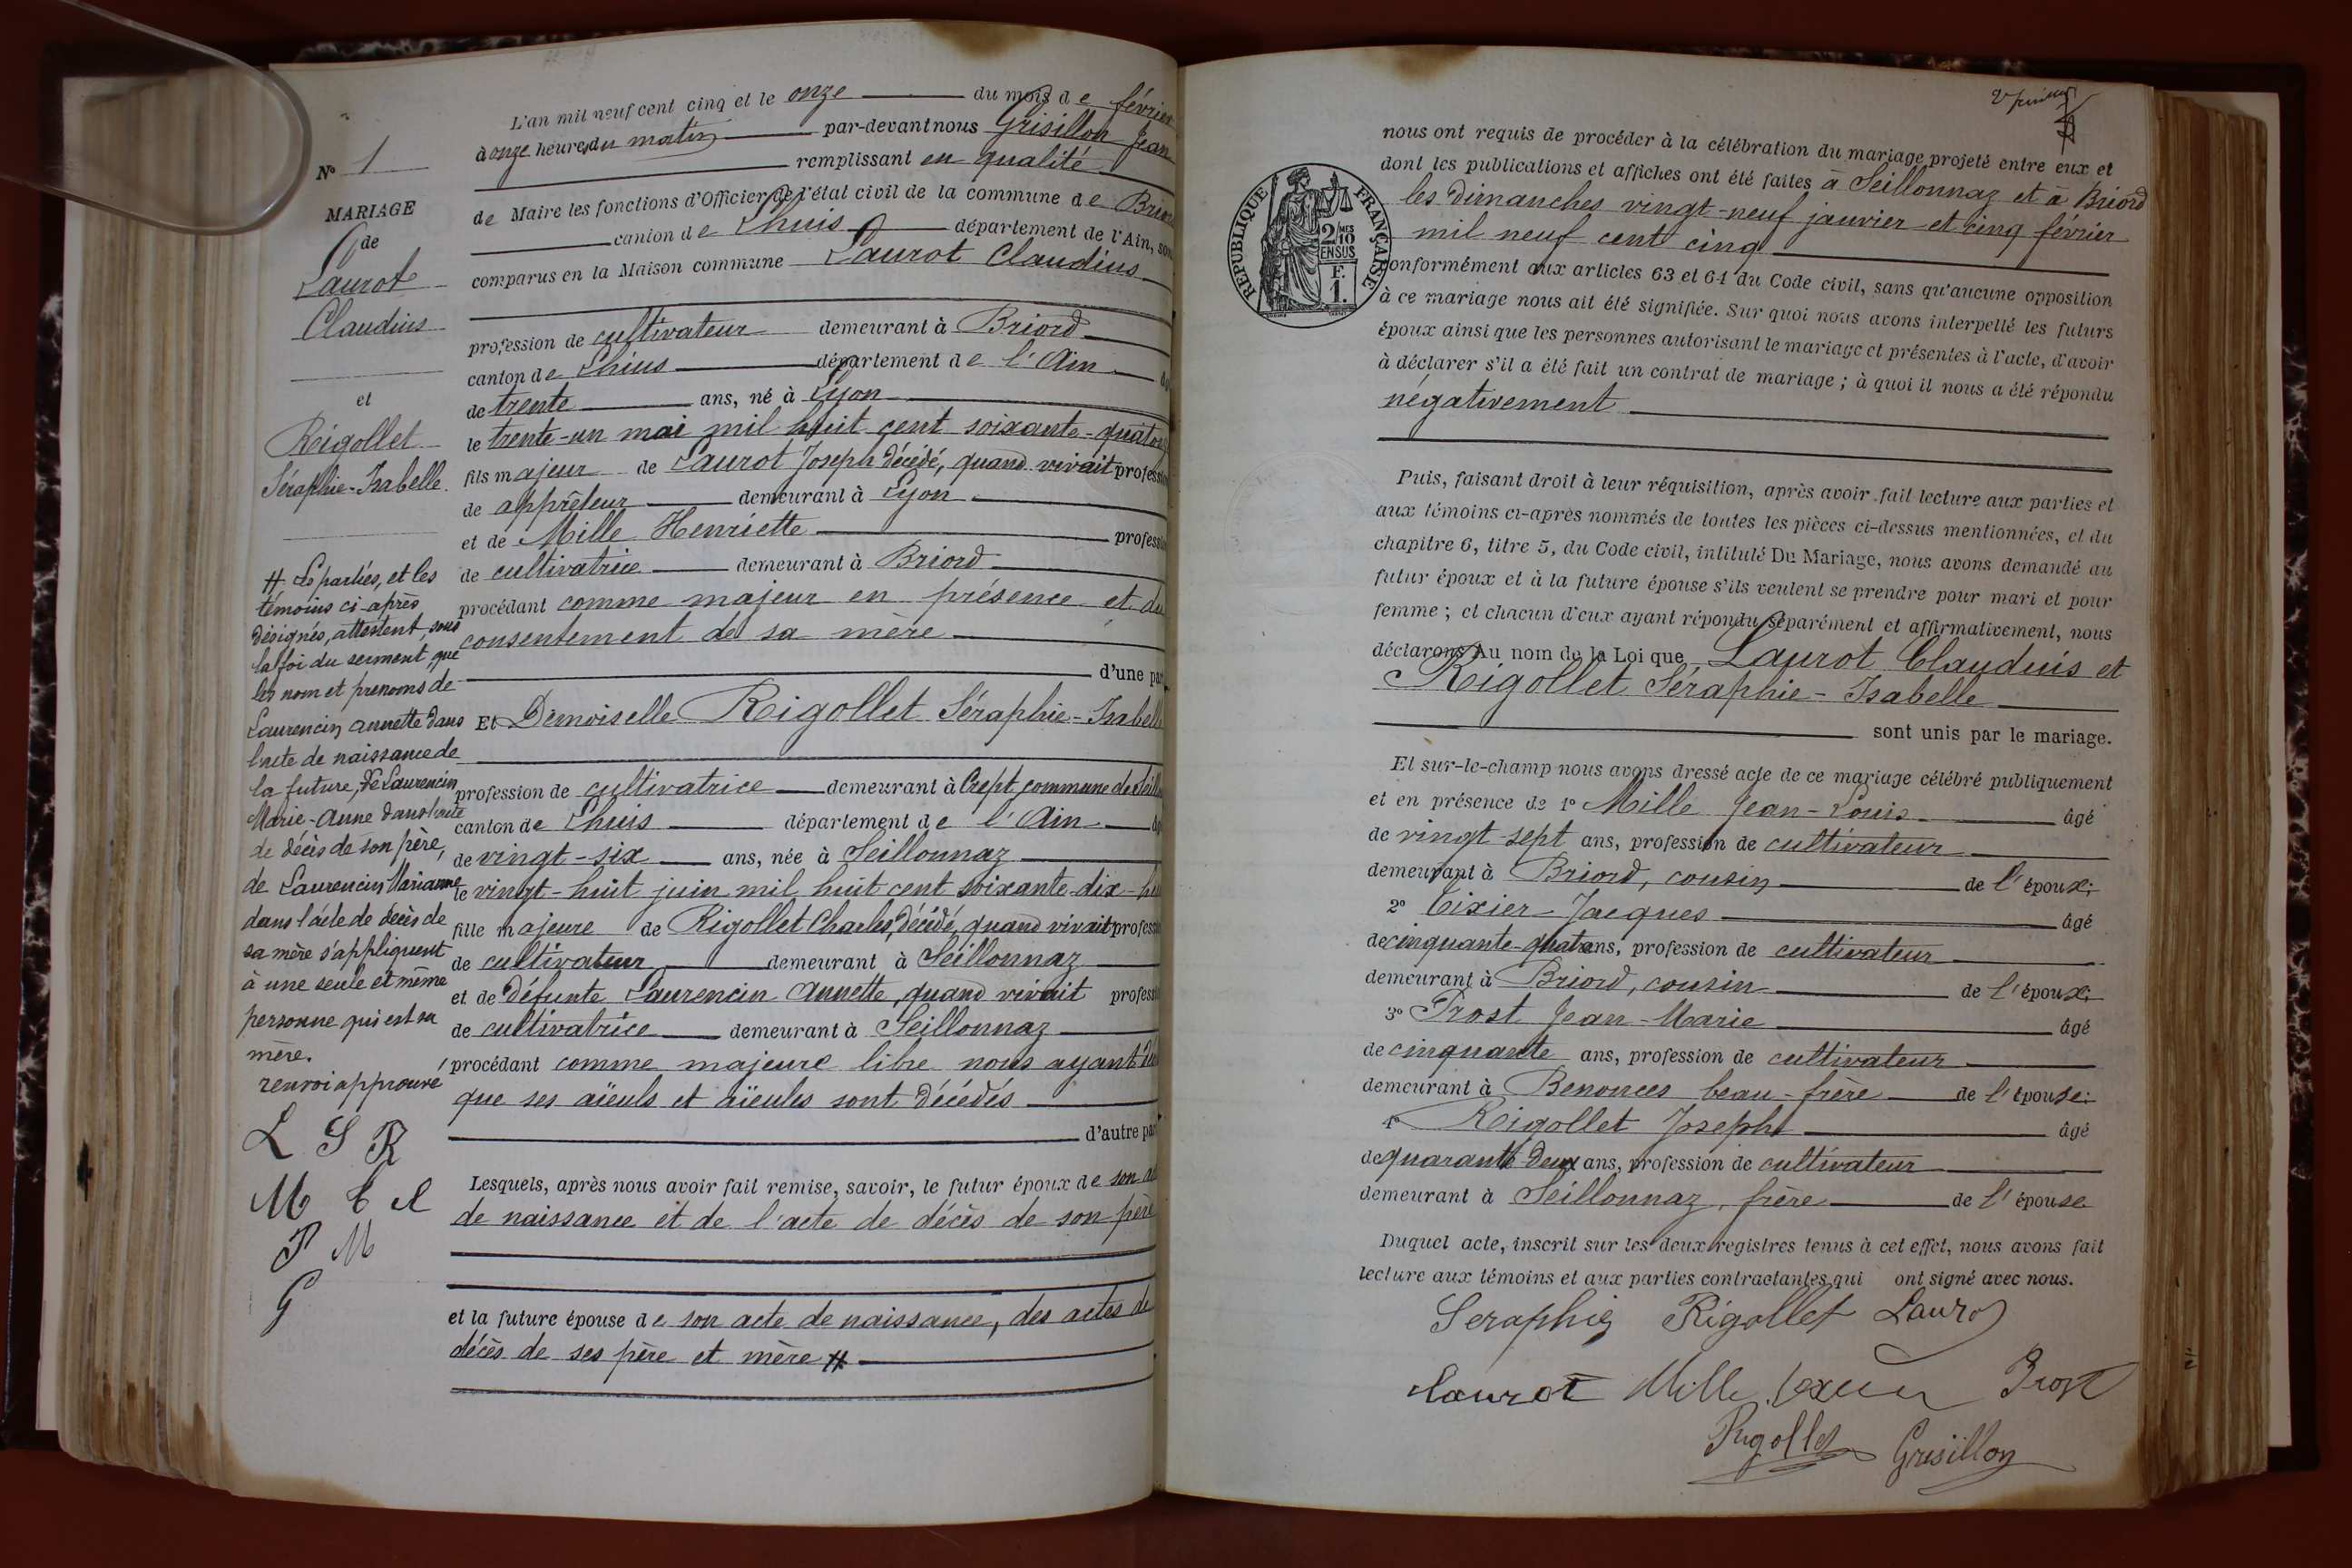 L'an mil neuf cent cinq et le onze du mois de février
à onze heures du matin par-devant nous Grisillon Jean
remplissant en qualité
de Maire les fonctions d'Officier de l'état civil de la commune de Briord
canton de Lhuis département de l'Ain, sont
comparus en la Maison commune Laurot Claudius
profession de cultivateur demeurant à Briord
canton de Lhius département de l'Ain
de trente ans, né à Lyon
le trente-un mai mil huit cent soixante-quatorze
fils majeur de Laurot Joseph décédé, quand vivait profession
de apprêteur demeurant à Lyon
et de Mille Henriette profession
de cultivatrice demeurant à Briord
procédant comme majeur en présence et du
consentement de sa mère
d'une part
Et Demoiselle Rigollet Séraphie-Isabelle
profession de cultivatrice demeurant à Crept commune de Seill
canton de Lhuis département de l'Ain
de vingt-six ans, née à Seillonnaz
le vingt-huit juin mil huit cent soixante-dix-hu
fille majeure de Rigollet Charles, décédé, quand vivait profession
de cultivateur demeurant à Seillonnaz
et de défunte Laurencin Annette, quand vivait profession
de cultivatrice demeurant à Seillonnaz
procédant comme majeure libre nous ayant
que ses aïeuls et aïeules sont décédés
d'autre part
Lesquels, après nous avoir fait remise, savoir, le futur époux de son
de naissance et de l'acte de décès de son père
et la future épouse de son acte de naissance, des actes de
décès de ses père et mère #
N° 1
MARIAGE
de
Laurot
Claudius
et
Rigollet
Séraphie-Isabelle
# Les parties, et les
témoins ci-après
désignés, attestent, sous
la foi du serment, que
les nom et prenoms de
Laurencin Annette dans
l'acte de naissance de
la future, de Laurencin
Marie-Anne dans l'acte
de décès de son père,
de Laurencin Marianne
dans l'acte de décès de
sa mère s'appliquent
à une seule et même
personne qui est sa
mère.
renvoi approuvé
L S R
M
P M
G
nous ont requis de procéder à la célébration du mariage projeté entre eux et
dont les publications et affiches ont été faites à Seillonnaz et à Briord
les dimanches vingt-neuf janvier et cinq février
mil neuf cent cinq
conformément aux articles 63 et 64 du Code civil, sans qu'aucune opposition
à ce mariage nous ait été signifiée. Sur quoi nous avons interpellé les futurs
époux ainsi que les personnes autorisant le mariage et présentes à l'acte, d'avoir
à déclarer s'il a été fait un contrat de mariage ; à quoi il nous a été répondu
négativement
RÉPUBLIQUE FRANÇAISE
2/10 EN SUS
F.
1.
Puis, faisant droit à leur réquisition, après avoir fait lecture aux parties et
aux témoins ci-après nommés de toutes les pièces ci-dessus mentionnées, et du
chapitre 6, titre 5, du Code civil, intitulé Du Mariage, nous avons demandé au
futur époux et à la future épouse s'ils veulent se prendre pour mari et pour
femme ; et chacun d'eux ayant répondu séparément et affirmativement, nous
déclarons Au nom de la Loi que Laurot Claudius et
Rigollet Séraphie-Isabelle
sont unis par le mariage.
Et sur-le-champ nous avons dressé acte de ce mariage célébré publiquement
et en présence de 1° Mille Jean-Louis âgé
de vingt-sept ans, profession de cultivateur
demeurant à Briord, cousin de l'époux;
2° Tixier Jacques âgé
de cinquante-quatre ans, profession de cultivateur
demeurant à Briord, cousin de l'époux;
3° Prost Jean-Marie âgé
de cinquante ans, profession de cultivateur
demeurant à Benonces beau-frère de l'épouse;
4° Rigollet Joseph âgé
de quarante deux ans, profession de cultivateur
demeurant à Seillonnaz, frère de l'épouse
Duquel acte, inscrit sur les deux registres tenus à cet effet, nous avons fait
lecture aux témoins et aux parties contractantes qui ont signé avec nous.
Seraphie Rigollet Laurot
Laurot Mille Prost
Rigollet Grisillon